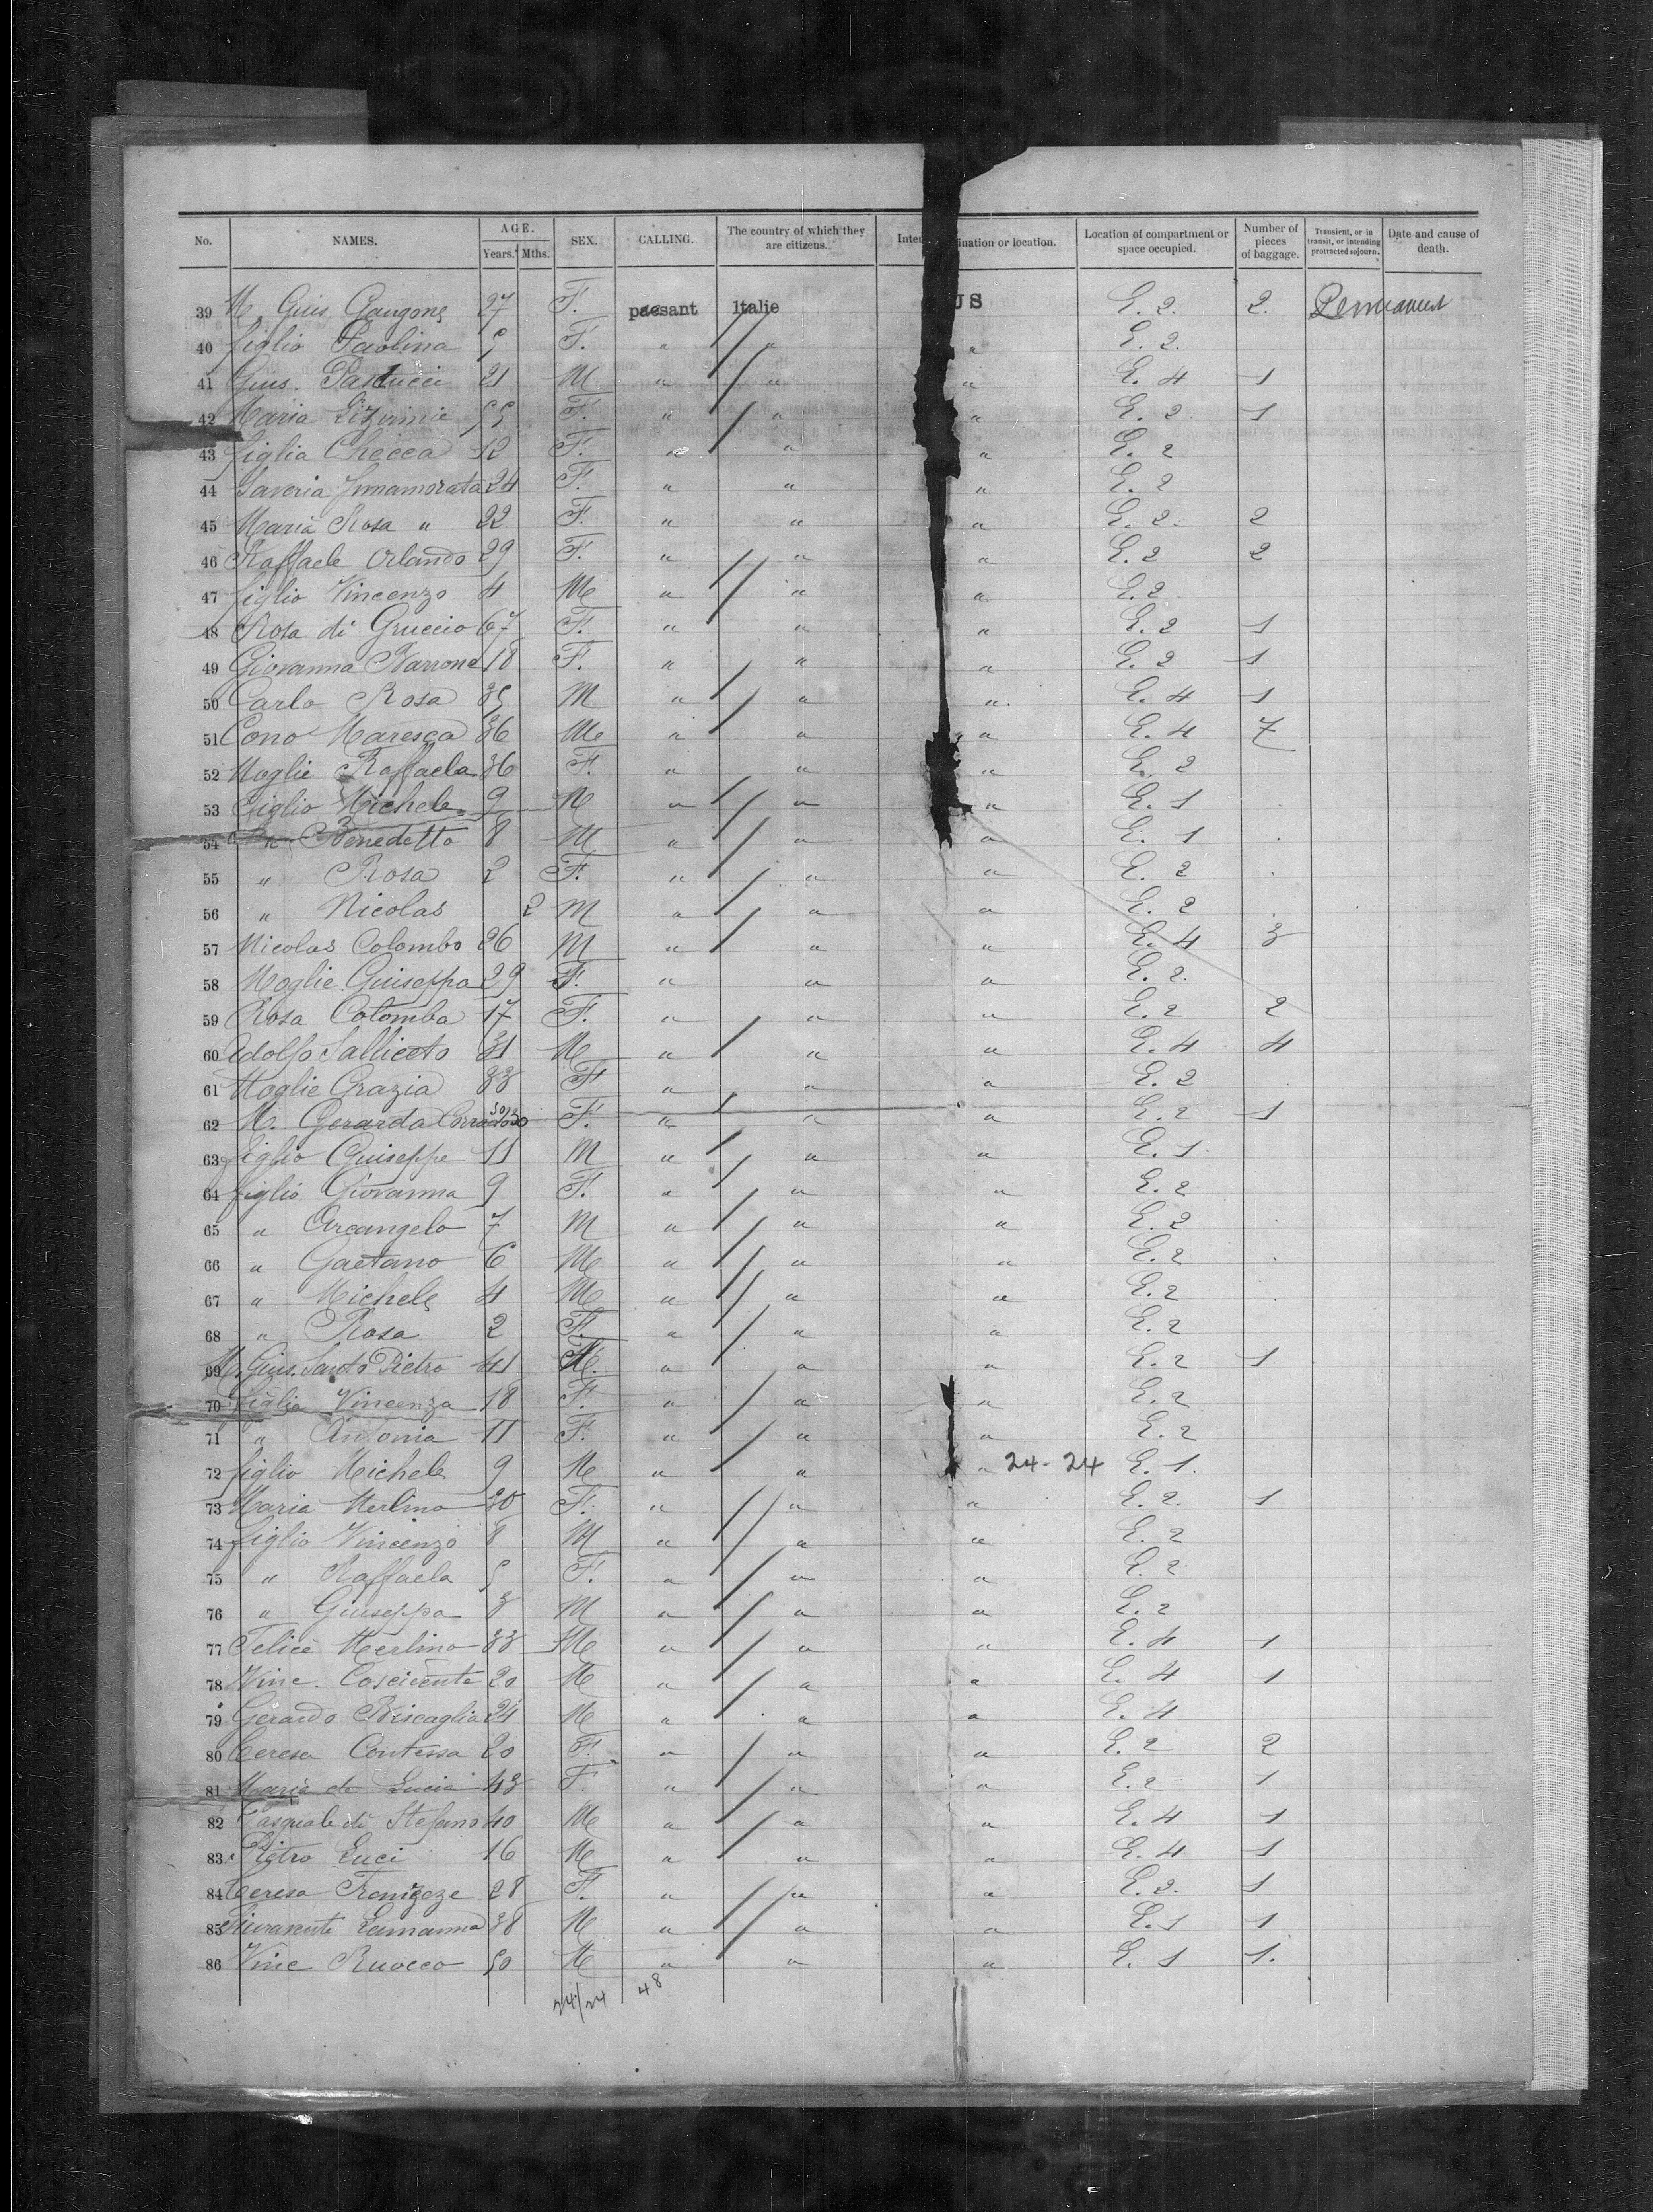 No. NAMES. AGE. Years. Mths. SEX. CALLING. The country of which they are citizens. Inten ination or location. Location of compartment or space occupied. Number of pieces of baggage. Transient, or in transit, or intending protracted sojourn. Date and cause of death.
39 M. Gius. 27 F. paesant Italie US E. 2. 2. Permanent
40 figlio Paolina 5 F. " " " E. 2.
41 Gius. Pastucci 21 M " " " E. 4 1
42 Maria 55 F. " " " E. 2. 1
43 figlia Checca 12 F. " " " E. 2
44 Saveria Innamorata 24 F. " " " E. 2
45 Maria Rosa " 22 F. " " " E. 2. 2
46 Raffaele Orlando 29 F. " " " E. 2 2
47 figlio Vincenzo 4 M " " " E. 2
48 Rosa di Gruccio 67 F. " " " E. 2 1
49 Giovanna Barrone 18 F. " " " E. 2 1
50 Carlo Rosa 35 M " " " E. 4 1
51 Cono Maresca 36 M " " " E. 4 7
52 Moglie Raffaela 36 F. " " " E. 2
53 Figlio Michele 9 M " " " E. 1
54 " Benedetto 8 M " " " E. 1
55 " Rosa 2 F. " " " E. 2
56 " Nicolas 2 M " " " E. 2
57 Nicolas Colombo 26 M " " " E. 4 3
58 Moglie Guiseppa 29 F. " " " E. 2.
59 Rosa Colomba 17 F. " " " E. 2 2
60 Adolfo Salliceto 31 M " " " E. 4 4
61 Moglie Grazia 33 F " " " E. 2
62 M. Gerarda 30 F. " " " E. 2 1
63 figlio Guiseppe 11 M " " " E. 1.
64 figlio Giovanna 9 F. " " " E. 2
65 " Arcangelo 7 M " " " E. 2
66 " Gaetano 6 M " " " E. 2
67 " Michele 4 M " " " E. 2
68 " Rosa 2 F. " " " E. 2
69 M. Gius. Santo Pietro 41 " " " E. 2 1
70 figlia Vincenza 18 F. " " " E. 2
71 " Antonia 11 F. " " " E. 2
72 figlio Michele 9 M " " " 24-24 E. 1.
73 Maria Merlino 30 F. " " " E. 2. 1
74 figlio Vincenzo 8 M " " " E. 2
75 " Raffaela 5 F. " " " E. 2
76 " Giuseppa 3 M " " " E. 2
77 Felice Merlino 33 M " " " E. 4 1
78 Vinc. Coscicente 20 M " " " E. 4 1
79 Gerardo Bricaglia 24 M " " " E. 4
80 Ceresa Contessa 20 F. " " " E. 2 2
81 Maria de Lucia 43 F " " " E. 2 1
82 Pasquale di Stefano 40 M " " " E. 4 1
83 Pietro Luci 16 M " " " E. 4 1
84 Ceresa 28 F. " " " E. 2. 1
85 Lamanna 38 M " " " E. 1 1
86 Vinc Ruocco 50 M " " " E. 1 1.
24/24 48